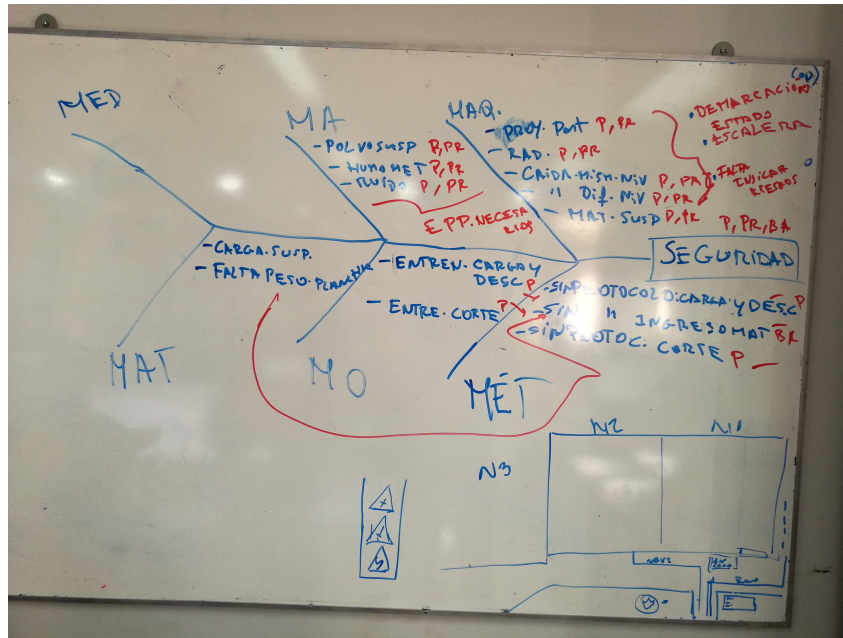 MED
MA
- POLVO SUSP P, PR
- HUMO MET P, PR
- RUIDO P, PR
E.P.P. NECESA
RIOS
MAQ.
- PROY. Part P, PR
- RAD. P, PR
- CAIDA. MISM. NIV P, PR
- " DIF. NIV P, PR
- MAT. SUSP P, PR
• DEMARCACION
ESTADO
• ESCALERA
• FALTA
INDICAR
RIESGOS
P, PR, BA
SEGURIDAD
- CARGA. SUSP.
- FALTA PESO. PLANCHA
MAT
- ENTREN. CARGA Y
DESC P
- ENTRE. CORTE P
MO
- SIN PROTOCOLO. CARGA Y DESC P
- SIN " INGRESO MAT BA
- SIN PROTOC. CORTE P
MÉT
N2 N1
N3